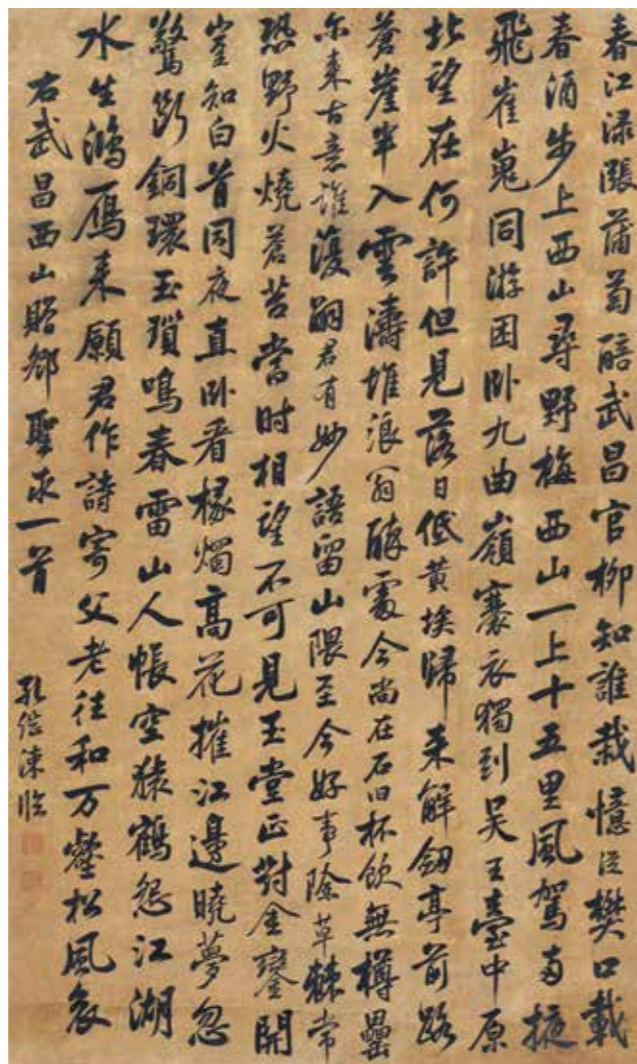 春江渌漲蒲萄醅武昌官柳知誰栽憶從樊口載
春酒步上西山尋野梅西山一上十五里風駕兩掖
飛崔嵬同游困卧九曲嶺褰衣獨到吴王臺中原
北望在何許但見落日低黄埃歸来解劔亭前路
蒼崖半入雲濤堆浪翁醉處今尚在石臼杯飲無樽罍
尔来古意誰復嗣君有妙語留山隈至今好事除草棘常
恐野火燒蒼苔當時相望不可見玉堂正對金鑾開
豈知白首同夜直卧看椽燭高花摧江邊曉夢忽
驚斷銅環玉瑣鳴春雷山人帳空猿鶴怨江湖
水生鴻雁来願君作詩寄父老往和万壑松風哀
右武昌西山贈鄧聖求一首
孔繼涑臨